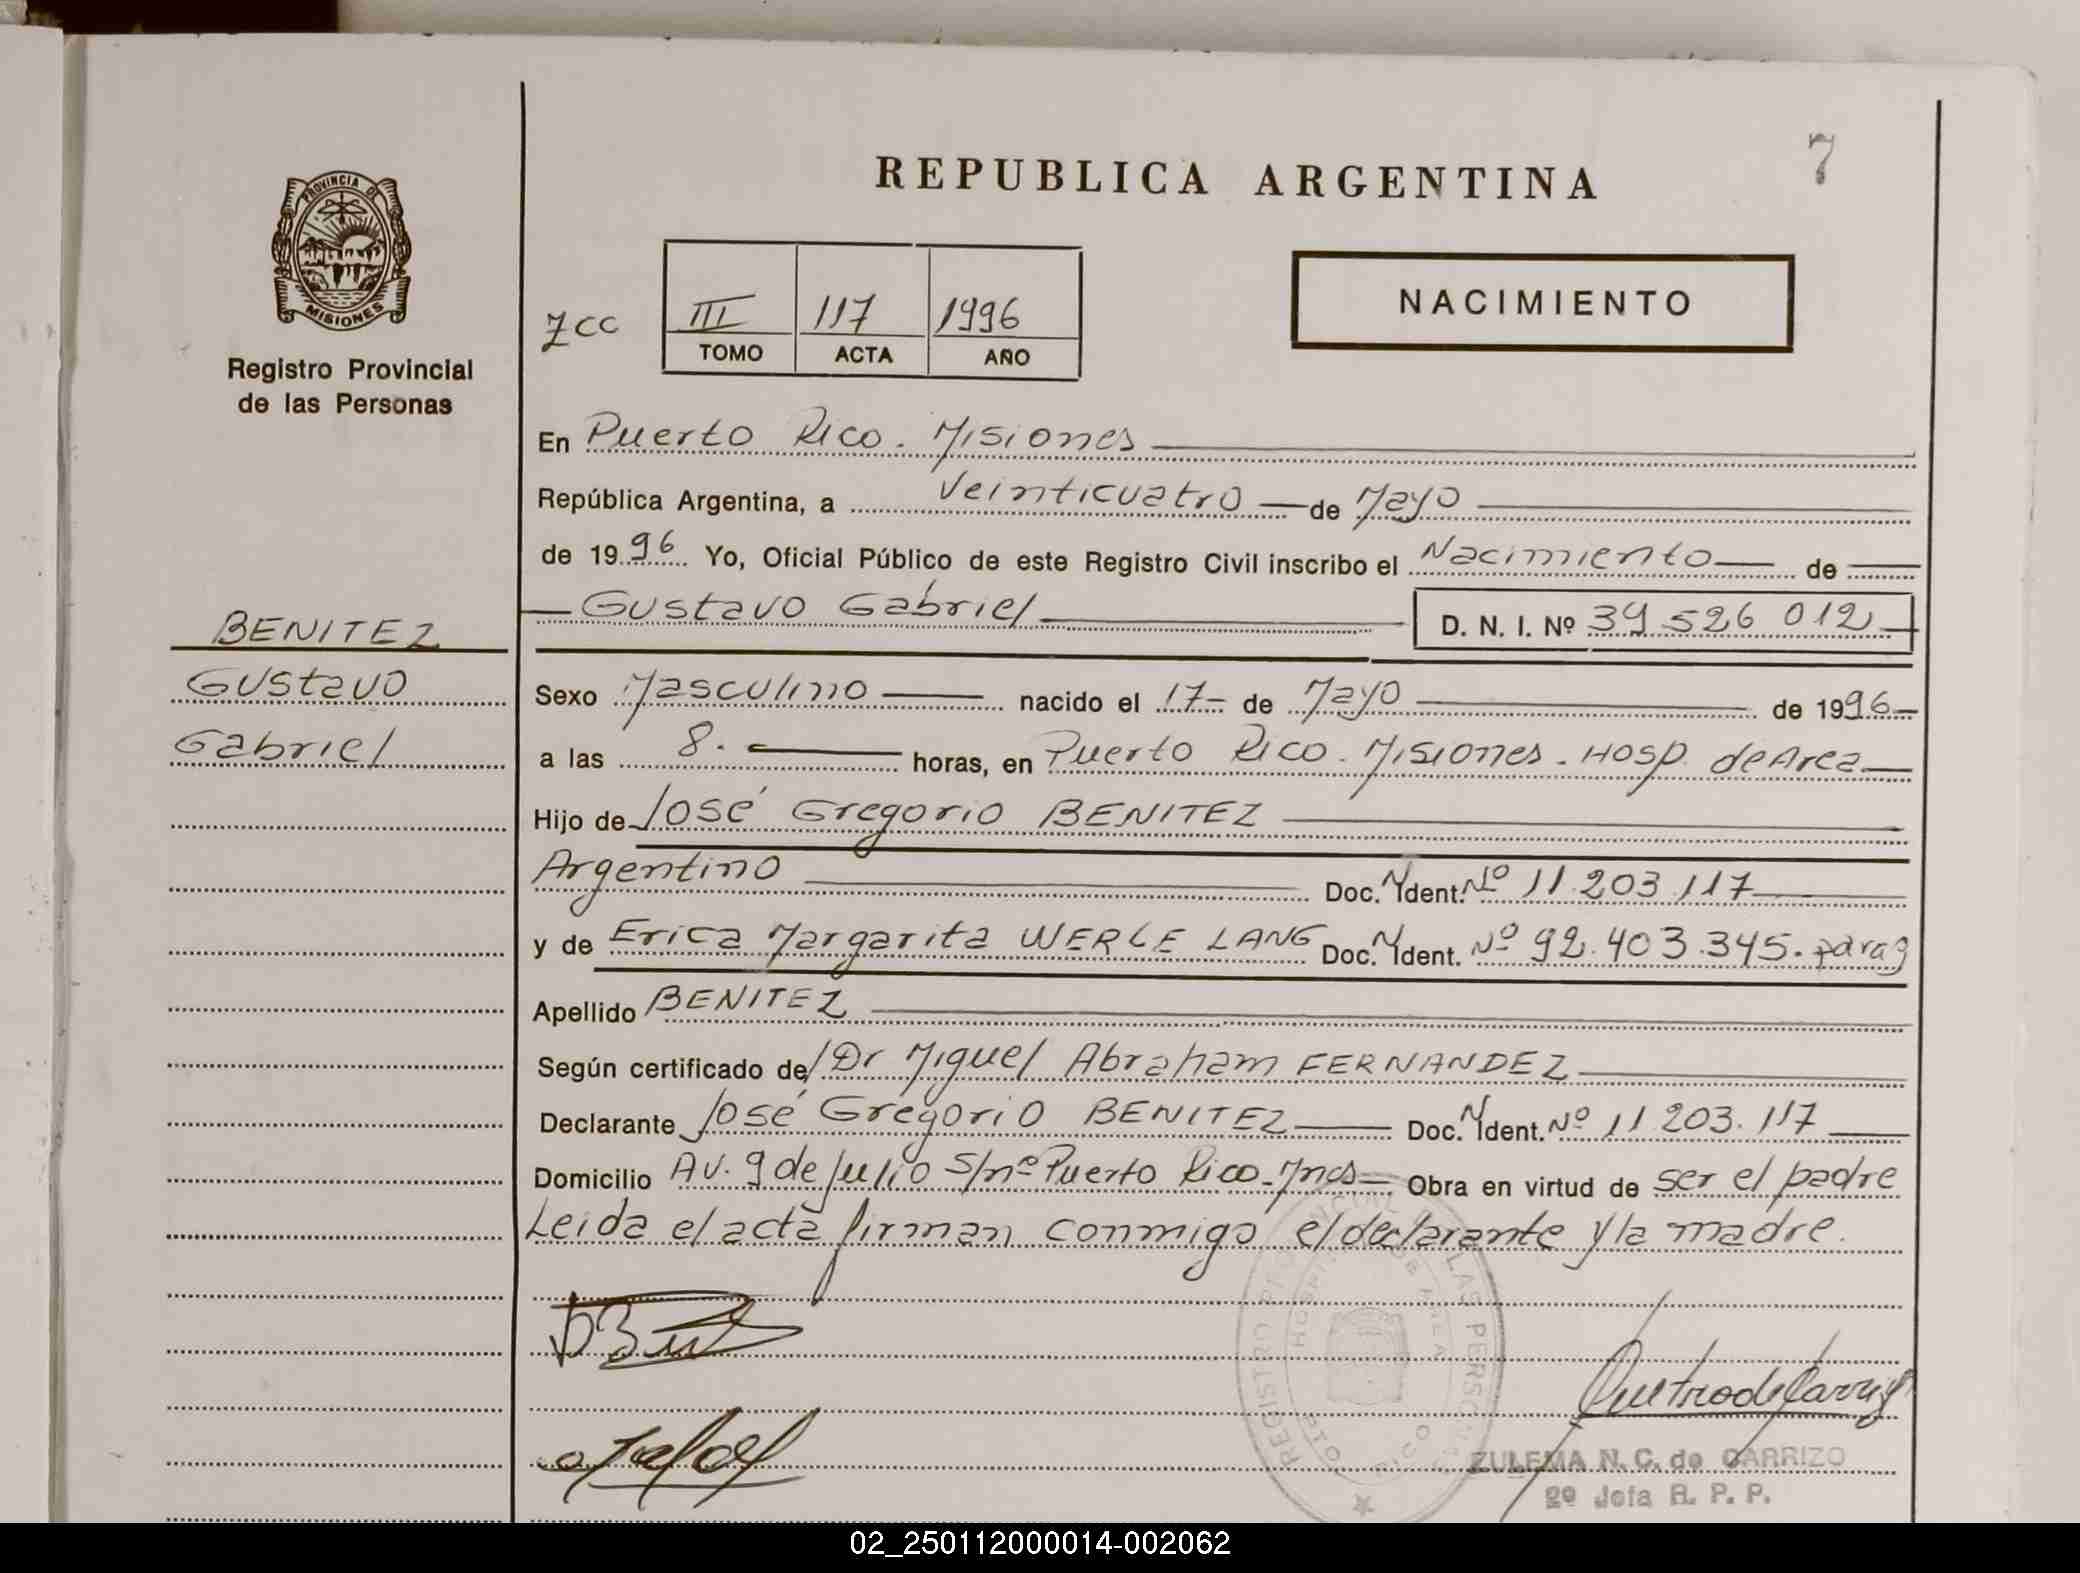 7
REPUBLICA ARGENTINA
PROVINCIA DE
MISIONES
Registro Provincial
de las Personas
III 117 1996
TOMO ACTA AÑO
NACIMIENTO
En Puerto Rico. Misiones
República Argentina, a Veinticuatro de Mayo
de 1996 Yo, Oficial Público de este Registro Civil inscribo el Nacimiento de
Gustavo Gabriel D. N. I. Nº 39 526 012
BENITEZ
Gustavo
Gabriel
Sexo Masculino nacido el 17 de Mayo de 1996
a las 8. horas, en Puerto Rico. Misiones. Hosp. de Area
Hijo de José Gregorio BENITEZ
Argentino Doc. N Ident. Nº 11.203.117
y de Erica Margarita WERLE LANG Doc. N Ident. Nº 92.403.345. parag
Apellido BENITEZ
Según certificado del Dr Miguel Abraham FERNANDEZ
Declarante José Gregorio BENITEZ Doc. N Ident. Nº 11 203.117
Domicilio Av. 9 de Julio S/nº Puerto Rico. Mnes Obra en virtud de ser el padre
Leida el acta firman conmigo el declarante y la madre.
ZULEMA N. C. de CARRIZO
2º Jefa R. P. P.
02_250112000014-002062